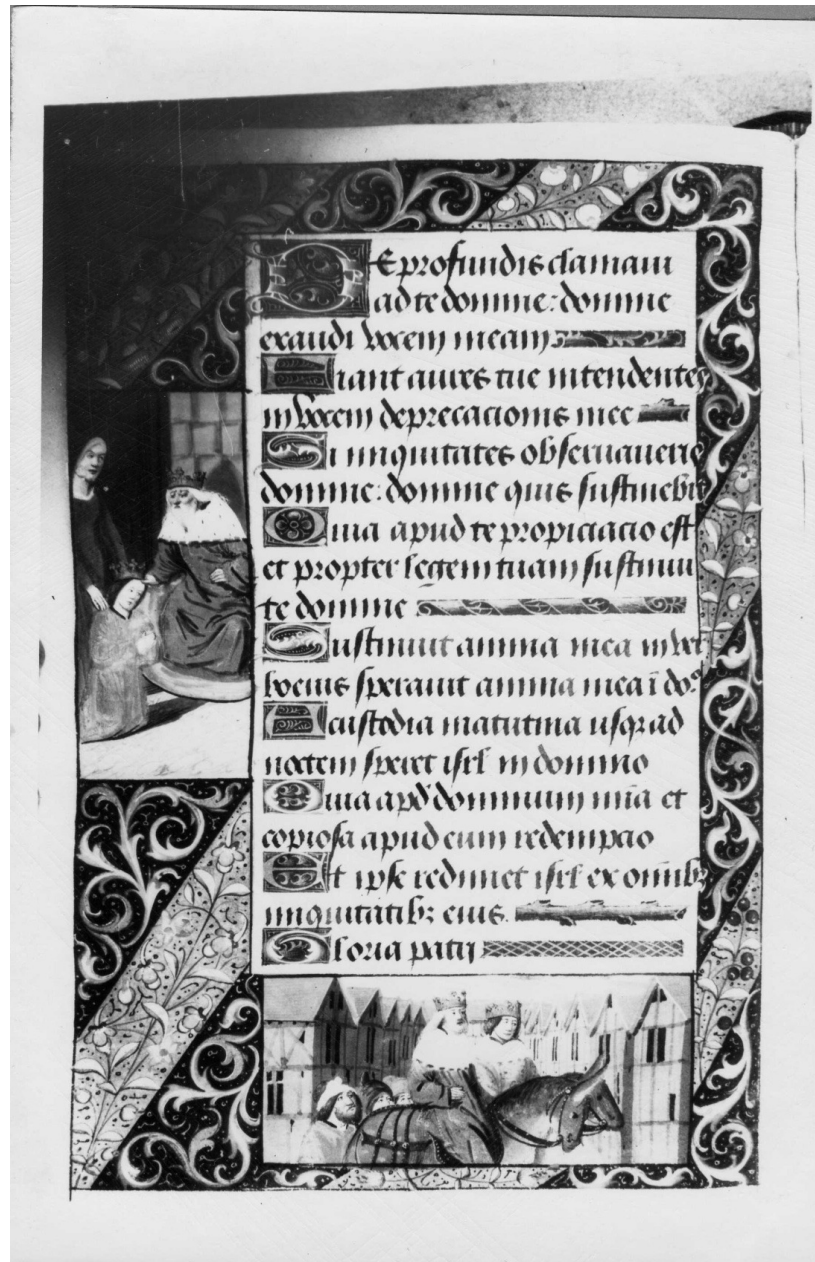 De profundis clamaui
ad te domine: domine
exaudi vocem meam
Fiant aures tue intendentes
in vocem deprecacionis mee
Si iniquitates obseruaueris
domine: domine quis sustinebit
Quia apud te propiciacio est
et propter legem tuam sustinui
te domine
Sustinuit anima mea in ver
bo eius sperauit anima mea ī do
A custodia matutina usqꝫ ad
noctem speret isrl in domino
Quia apd dominum mia et
copiosa apud eum redempcio
Et ipse redimet isrl ex omibꝫ
iniquitatibꝫ eius.
Gloria patri